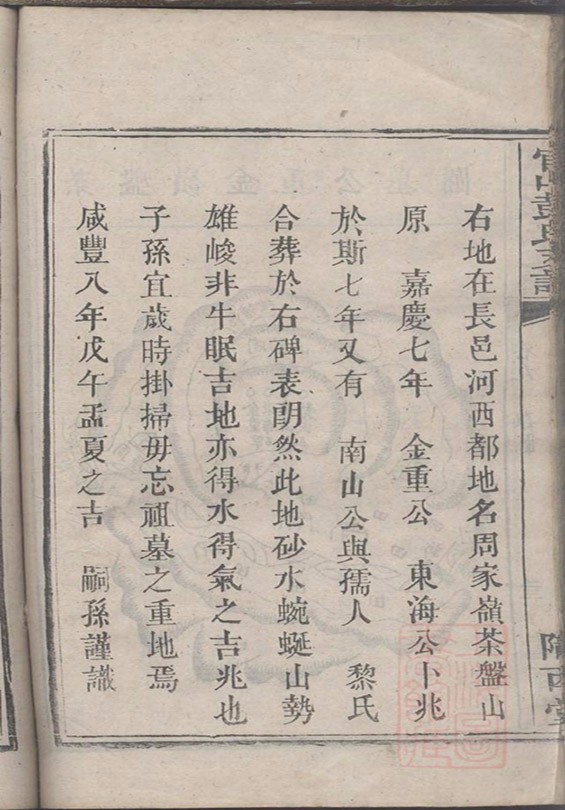 右地在長邑河西都地名周家嶺茶盤山
原 嘉慶七年 金重公 東海公卜兆
於斯七年又有 南山公與孺人 黎氏
合葬於右碑表朗然此地砂水蜿蜒山勢
雄峻非牛眠吉地亦得水得氣之吉兆也
子孫宜歲時掛掃毋忘祖墓之重地焉
咸豐八年戊午孟夏之吉 嗣孫謹識